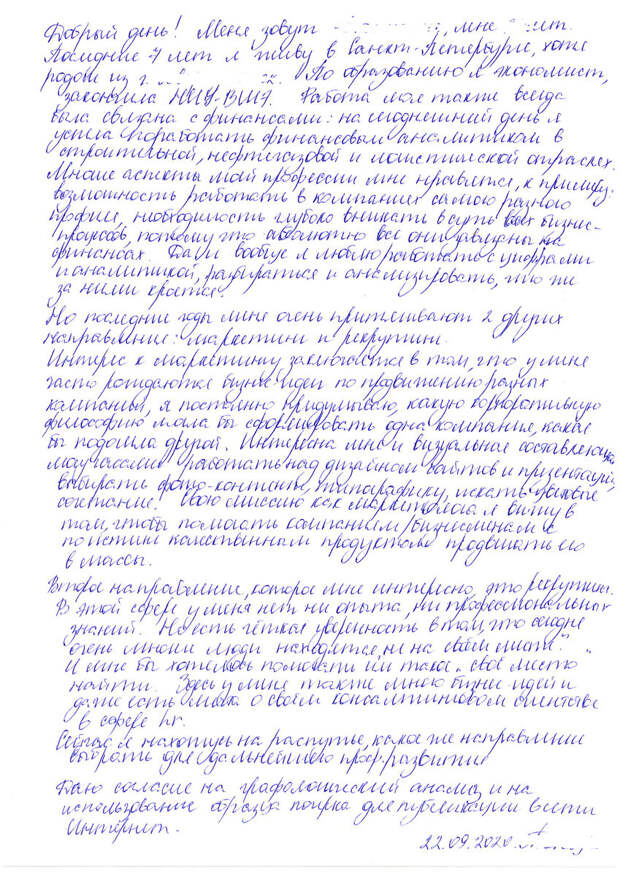 Добрый день! Меня зовут , мне лет.
Последние 7 лет я живу в Санкт-Петербурге, хотя
родом из г. По образованию я экономист,
закончила НИУ-ВШЭ. Работа моя также всегда
была связана с финансами: на сегодняшний день я
успела поработать финансовым аналитиком в
строительной, нефтегазовой и логистической отраслях.
Многие аспекты моей профессии мне нравятся, к примеру,
возможность работать в компаниях самого разного
профиля, необходимость глубоко вникать в суть всех бизнес-
процессов, потому что абсолютно все они завязаны на
финансах. Да и вообще я люблю работать с цифрами
и аналитикой, разбираться и анализировать, что же
за ними кроется.
Но последние годы мне очень притягивают 2 других
направления: маркетинг и рекрутинг.
Интерес к маркетингу заключается в том, что у меня
часто рождаются бизнес-идеи по продвижению разных
компаний, я постоянно придумываю, какую корпоративную
философию могла бы сформировать одна компания, какая
бы подошла другой. Интересна мне и визуальная составляющая
могу часами работать над дизайном сайтов и презентаций,
выбирать фото-контент, типографику, искать цветовые
сочетание. Свою миссию как маркетолога я вижу в
том, чтобы помогать компаниям/бизнесменам с
поистине качественным продуктом продвигать его
в массы.
Второе направление, которое мне интересно, это рекрутинг.
В этой сфере у меня нет ни опыта, ни профессиональных
знаний. Но есть чёткая уверенность в том, что сегодня
очень многие люди находятся „не на своём месте".
И мне бы хотелось помогать им такое „своё место"
найти. Здесь у меня также много бизнес-идей и
даже есть мечта о своём консалтинговом агентстве
в сфере hr.
Сейчас я нахожусь на распутье, какое же направление
выбрать для дальнейшего проф. развития
Даю согласие на графологический анализ и на
использование образца почерка для публикации в сети
Интернет.
22.09.2020